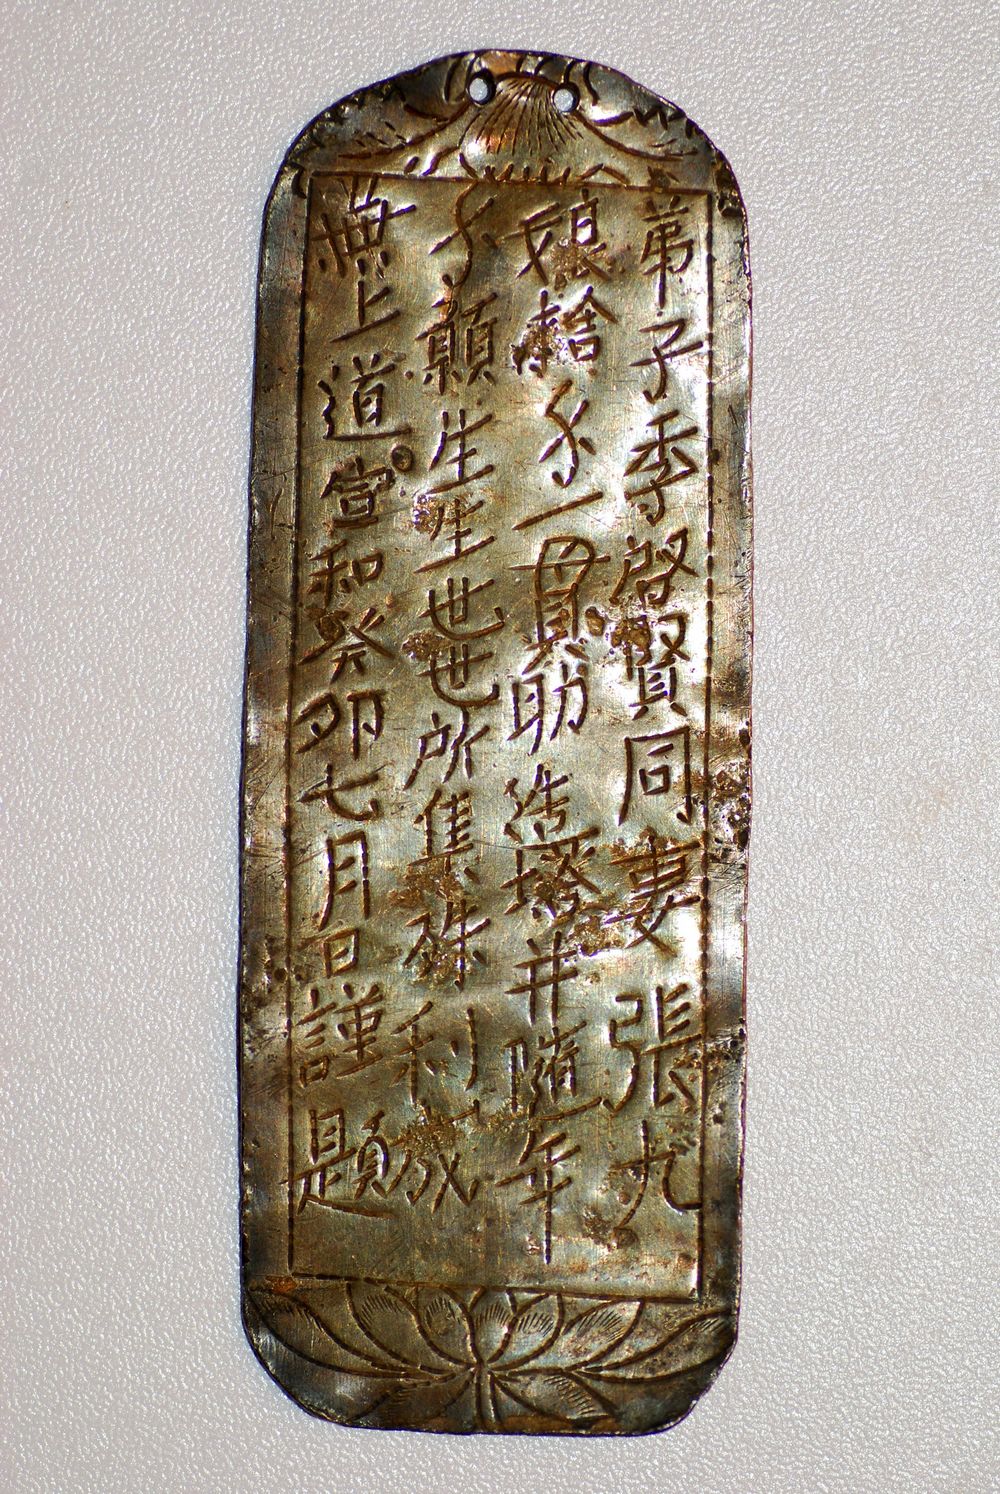 弟子季啓賢同妻張九
娘捨錢一貫助造塔并隨年
錢願生生世世所集殊利成
無上道宣和癸卯七月日謹題